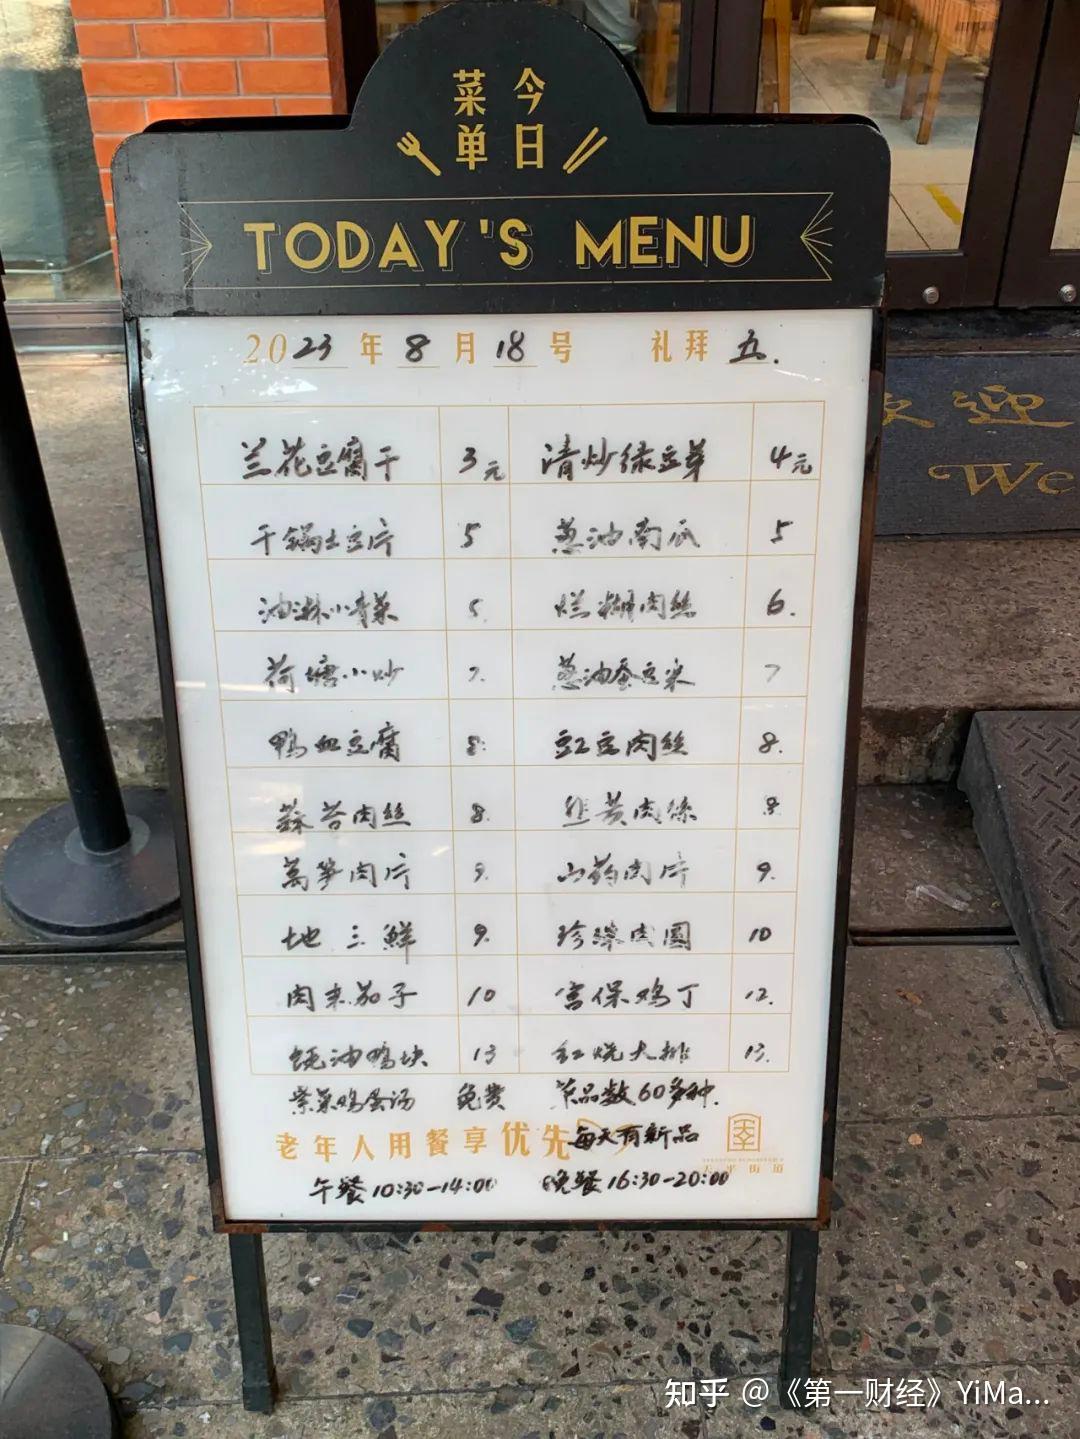 今日菜单
TODAY'S MENU
2023年8月18号 礼拜五.
兰花豆腐干 3元 清炒绿豆芽 4元
干锅土豆片 5 葱油南瓜 5
油淋小青菜 5. 烂糊肉丝 6.
荷塘小炒 7. 葱油蚕豆米 7
鸭血豆腐 8. 豇豆肉丝 8.
蒜苔肉丝 8. 韭黄肉丝 8
莴笋肉片 9. 山药肉片 9.
地三鲜 9. 珍珠肉圆 10
肉末茄子 10 宫保鸡丁 12.
蚝油鸭块 13 红烧大排 13.
紫菜鸡蛋汤 免费 菜品数60多种.
老年人用餐享优先 每天有新品
天平街道
午餐10:30-14:00 晚餐16:30-20:00
欢迎
We
知乎 @《第一财经》YiMa...